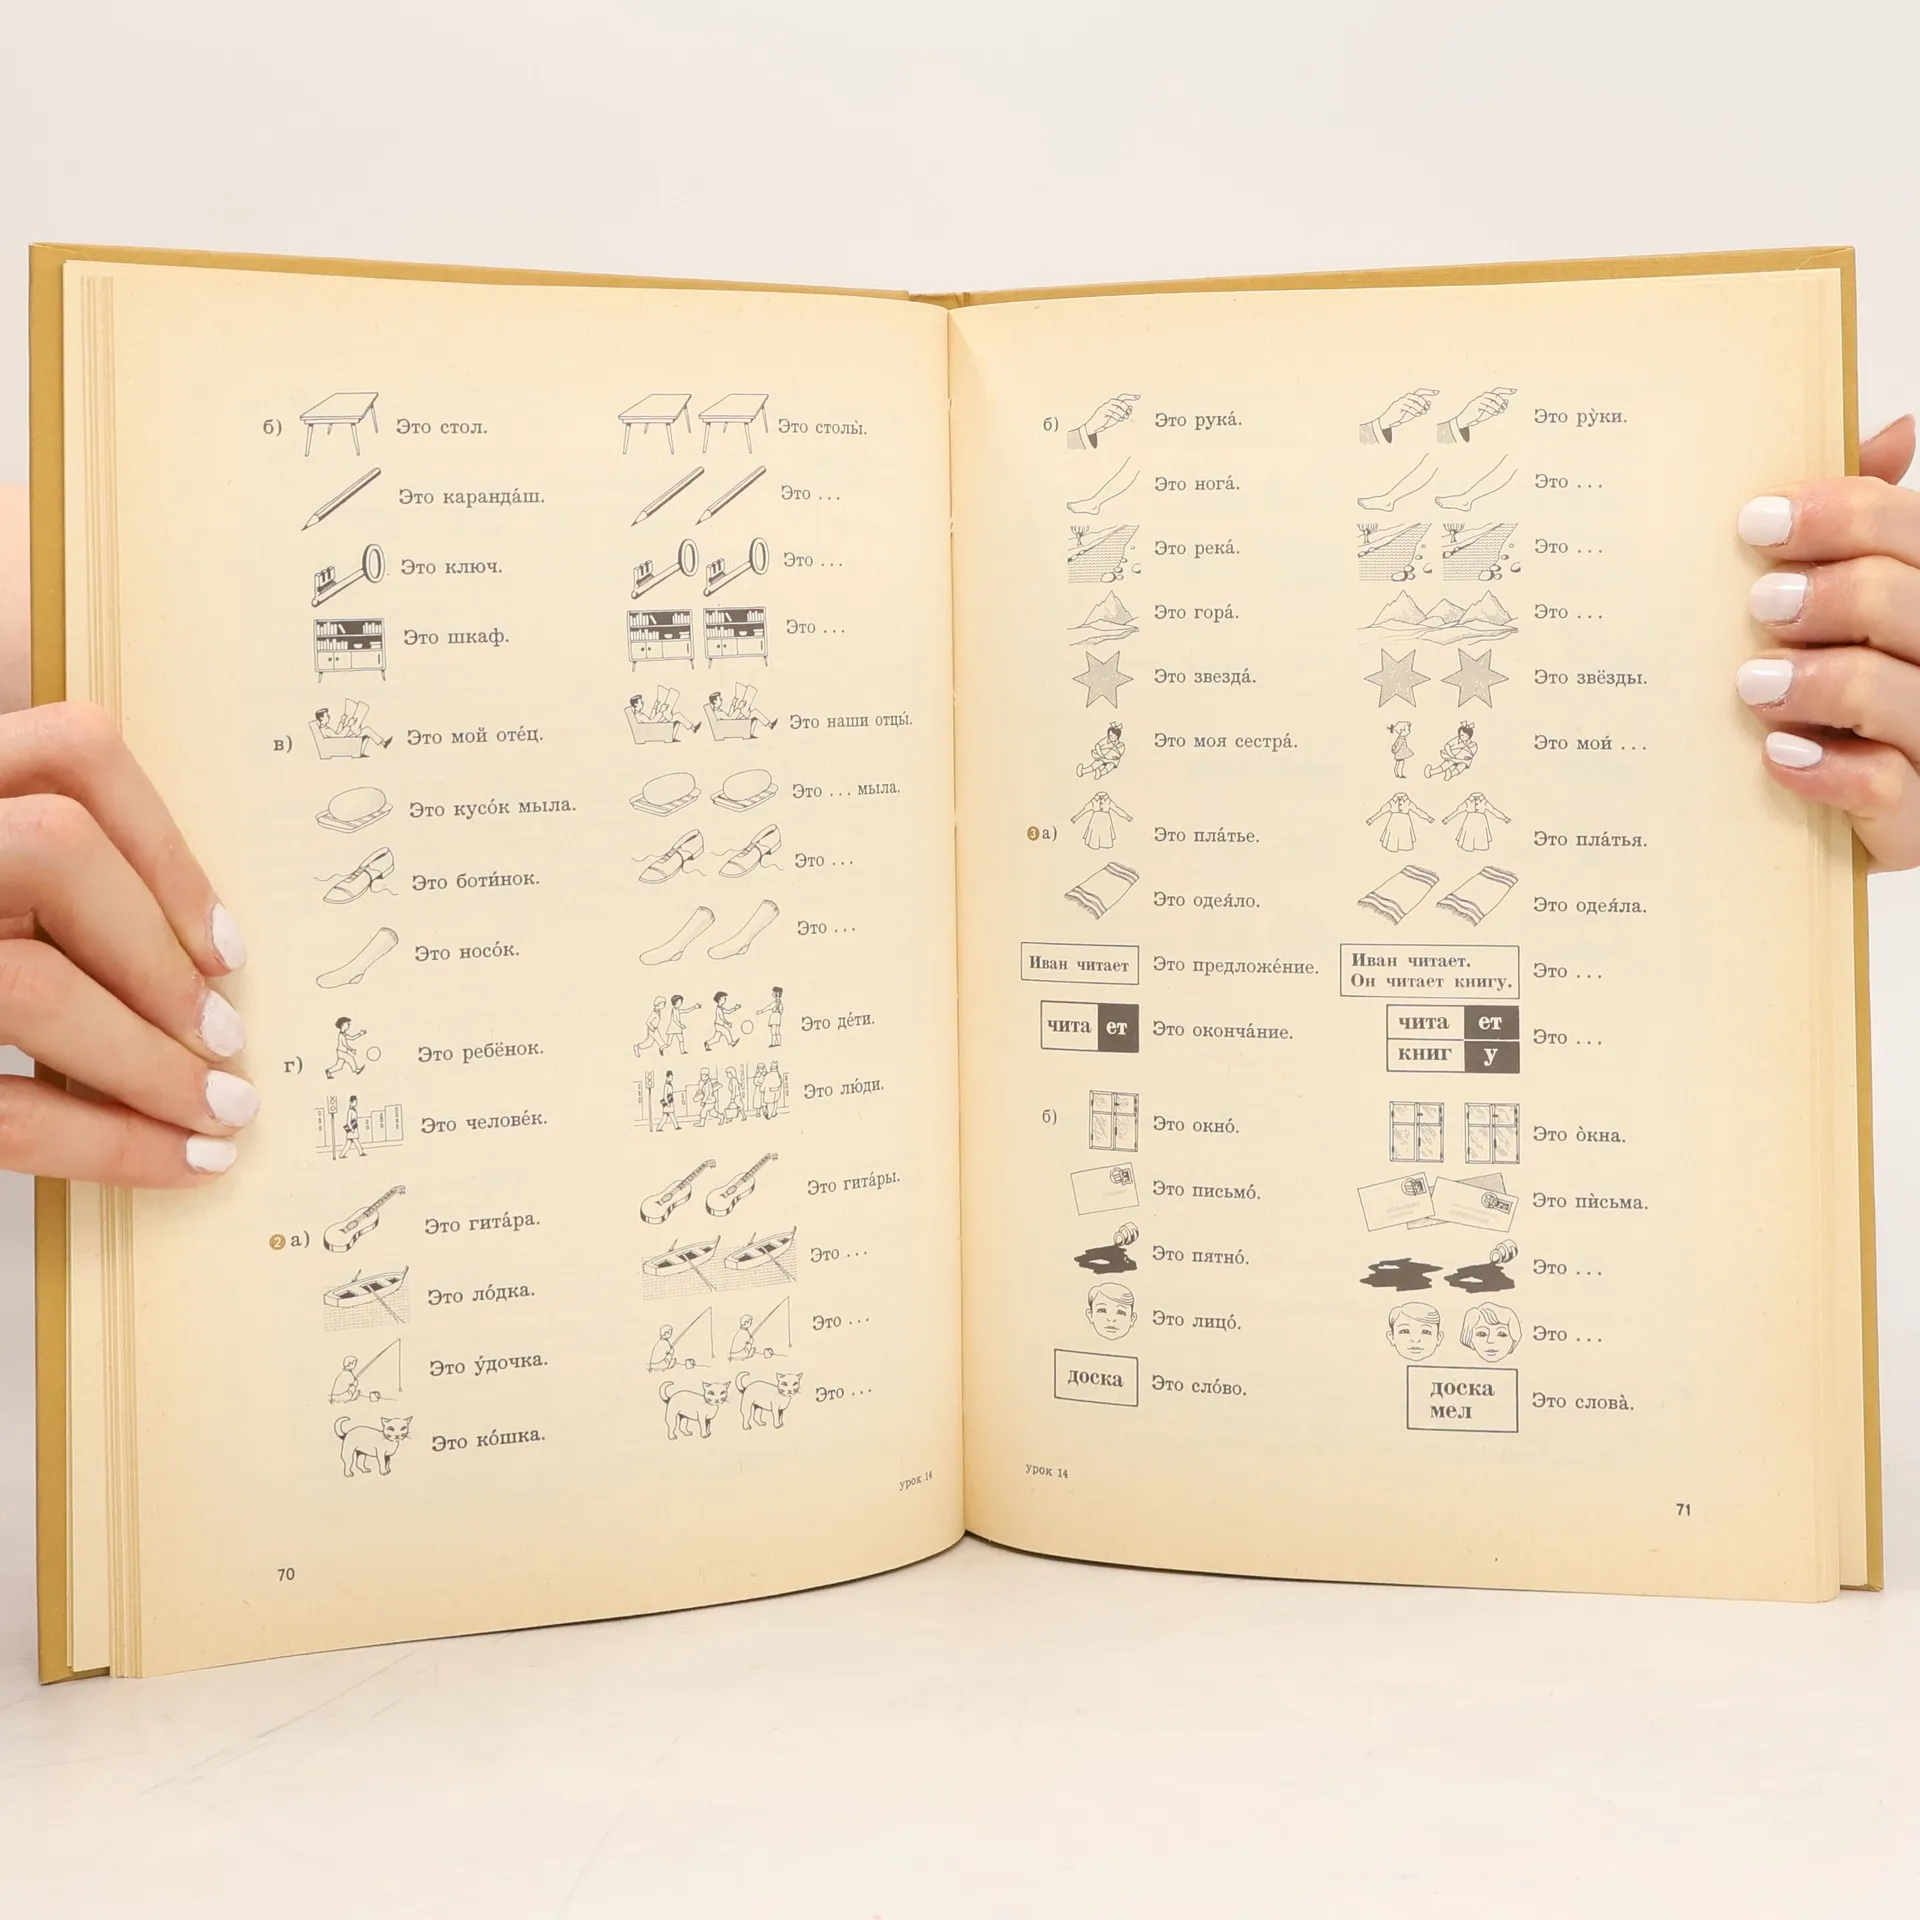 б) Это стол. Это столы̀.
Это каранда́ш. Это ...
Это ключ. Это ...
Это шкаф. Это ...
в) Это мой оте́ц. Это наши отцы́.
Это кусо́к мыла. Это ... мыла.
Это боти́нок. Это ...
Это носо́к. Это ...
г) Это ребёнок. Это де́ти.
Это челове́к. Это лю́ди.
2 а) Это гита́ра. Это гита́ры.
Это ло́дка. Это ...
Это у́дочка. Это ...
Это ко́шка. Это ...
урок 14
70
б) Это рука́. Это ру̀ки.
Это нога́. Это ...
Это река́. Это ...
Это гора́. Это ...
Это звезда́. Это звёзды.
Это моя сестра́. Это мои́ ...
3 а) Это пла́тье. Это пла́тья.
Это одея́ло. Это одея́ла.
Иван читает Это предложе́ние. Иван читает.
Он читает книгу. Это ...
чита ет Это оконча́ние. чита ет
книг у Это ...
б) Это окно́. Это о̀кна.
Это письмо́. Это пѝсьма.
Это пятно́. Это ...
Это лицо́. Это ...
доска Это сло́во. доска
мел Это слова̀.
урок 14
71